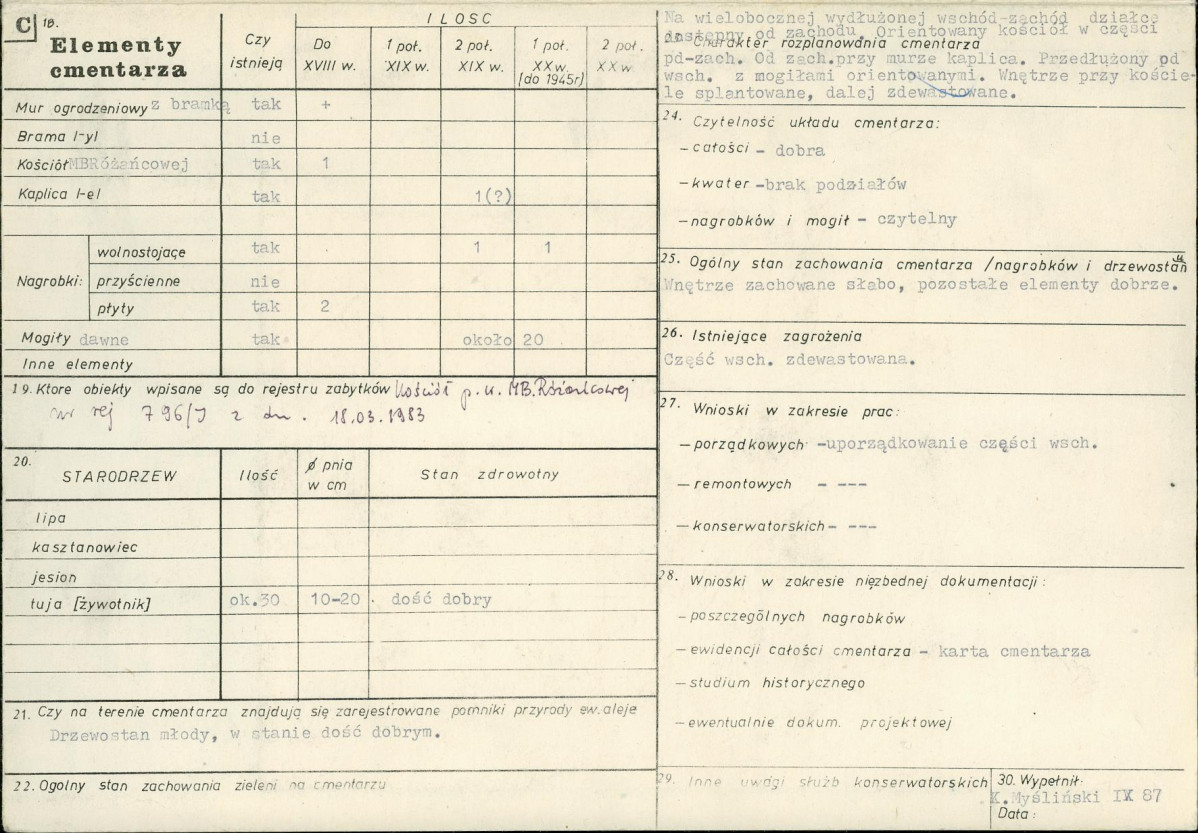 C 18. Elementy cmentarza
Czy istnieją
ILOSC
Do XVIII w.
1 poł. XIX w.
2 poł. XIX w.
1 poł. XX w. (do 1945r)
2 poł. XX w
Mur ogrodzeniowy z bramką tak +
Brama l-yl nie
Kościół MBRóżańcowej tak 1
Kaplica l-el tak 1(?)
Nagrobki:
wolnostojące tak 1 1
przyścienne nie
płyty tak 2
Mogiły dawne tak około 20
Inne elementy
19. Ktore obiekty wpisane są do rejestru zabytków Kościół p.w. MB.Różańcowej
nr rej 796/J z dn. 18.03.1983
20. STARODRZEW Ilość ø pnia w cm Stan zdrowotny
lipa
kasztanowiec
jesion
tuja [żywotnik] ok.30 10-20 dość dobry
21. Czy na terenie cmentarza znajdują się zarejestrowane pomniki przyrody ew. aleje
Drzewostan młody, w stanie dość dobrym.
22. Ogolny stan zachowania zieleni na cmentarzu
Na wielobocznej wydłużonej wschód-zachód działce
dostępny od zachodu. Orientowany kościół w części
Charakter rozplanowania cmentarza
pd-zach. Od zach.przy murze kaplica. Przedłużony od
wsch. z mogiłami orientowanymi. Wnętrze przy koście-
le splantowane, dalej zdewastowane.
24. Czytelność układu cmentarza:
- całości - dobra
- kwater -brak podziałów
- nagrobków i mogił - czytelny
25. Ogólny stan zachowania cmentarza /nagrobków i drzewostanu
Wnętrze zachowane słabo, pozostałe elementy dobrze.
26. Istniejące zagrożenia
Część wsch. zdewastowana.
27. Wnioski w zakresie prac:
- porządkowych -uporządkowanie części wsch.
- remontowych - ---
- konserwatorskich - ---
28. Wnioski w zakresie niezbednej dokumentacji:
- poszczególnych nagrobków
- ewidencji całości cmentarza - karta cmentarza
- studium historycznego
- ewentualnie dokum. projektowej
29. Inne uwagi służb konserwatorskich
30. Wypełnił:
K.Myśliński IX 87
Data: